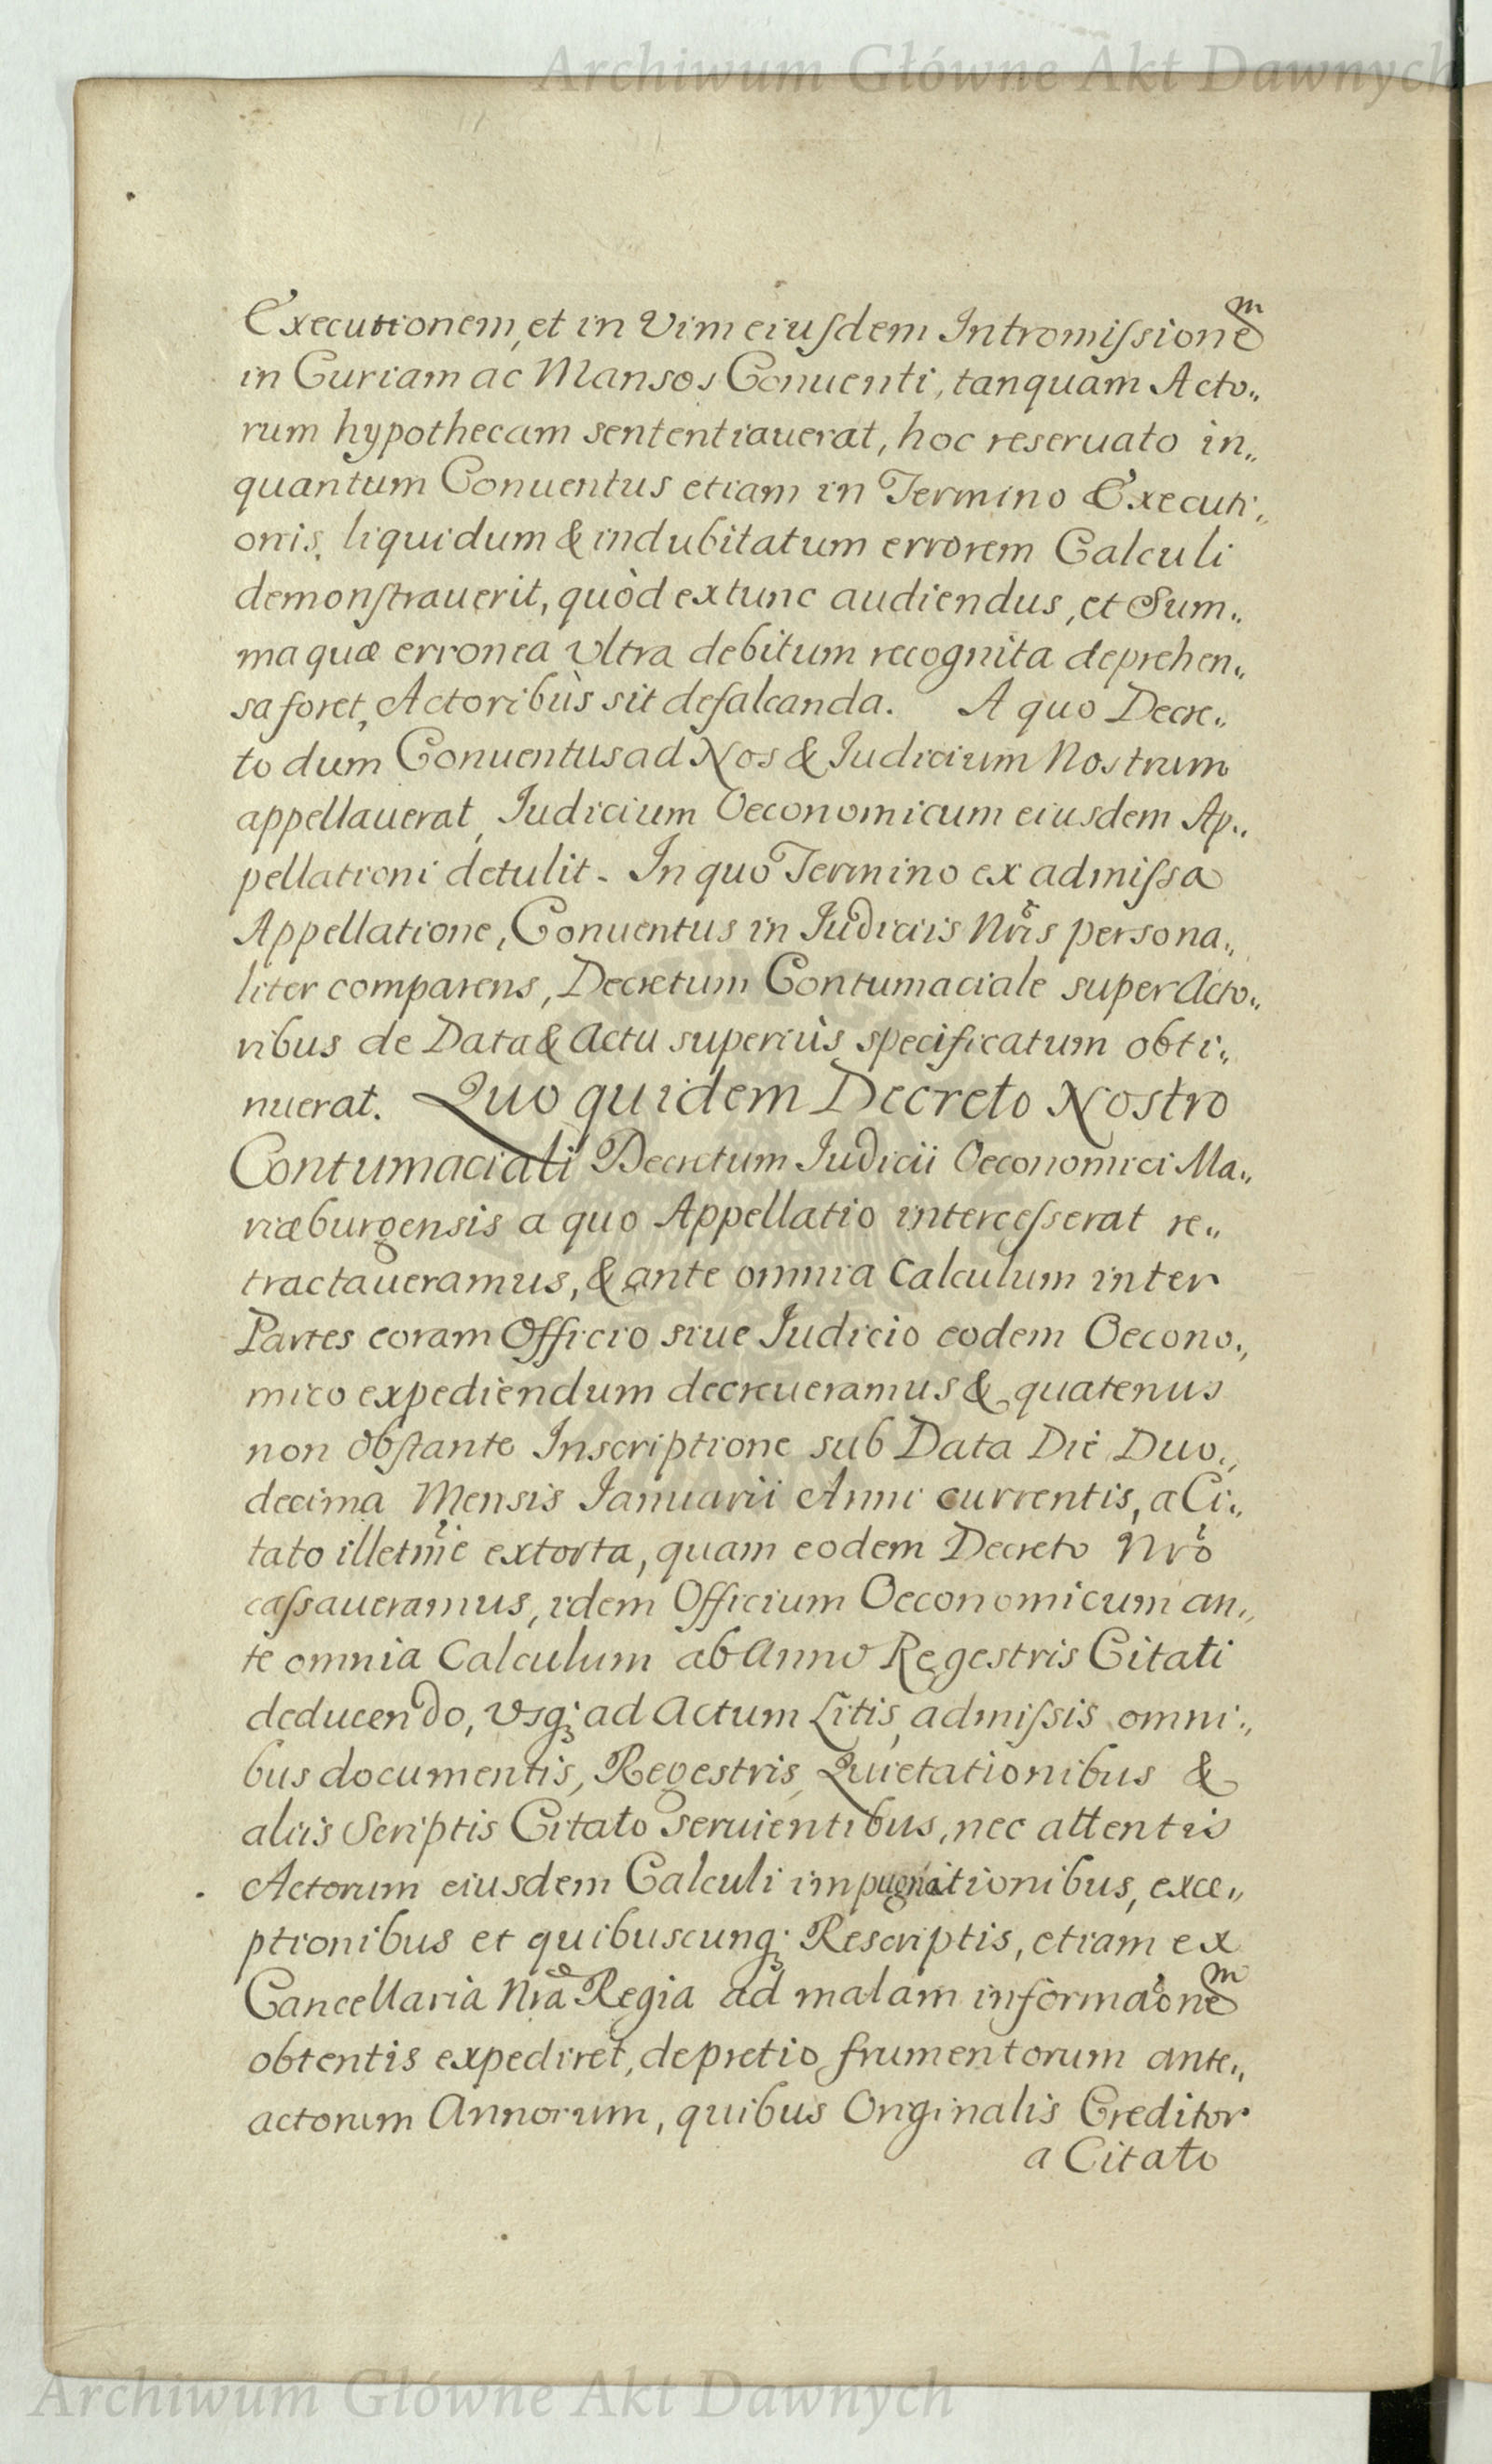 Archiwum Główne Akt Dawnych
Executionem, et in Vim eiuſdem Intromiſsione͠m
in Curiam ac Mansos Conuenti, tanquam Acto„
rum hypothecam sententiauerat, hoc reseruato in„
quantum Conuentus etiam in Termino Executi„
onis, liquidum & indubitatum errorem Calculi
demonſtrauerit, quòd extunc audiendus, et Sum„
ma quæ erronea Vltra debitum recognita deprehen„
sa foret, Actoribùs sit defalcanda. A quo Decre„
to dum Conuentus ad Nos & Iudicium Nostrum
appellauerat, Iudicium Oeconomicum eiusdem Ap„
pellationi detulit. In quo Termino ex admiſsa
Appellatione, Conuentus in Iudiciis Nr̃is persona„
liter comparens, Decretum Contumaciale super Acto„
ribus de Data & Actu superiùs specificatum obti„
nuerat. Quo quidem Decreto Nostro
Contumaciali Decretum Iudicii Oeconomici Ma„
riæburgensis a quo Appellatio interceſserat re„
tractaueramus, & ante omnia Calculum inter
Partes coram Officio siue Iudicio eodem Oecono„
mico expediendum decreueramus & quatenus
non obſtante Inscriptione sub Data Die Duo„
decima Mensis Ianuarii Anni currentis, a Ci„
tato illetm̃e extorta, quam eodem Decreto Nr̃o
caſsaueramus, idem Officium Oeconomicum an„
te omnia Calculum ab Anno Regestris Citati
deducendo, Vsq; ad Actum Litis, admiſsis omni„
bus documentis, Regestris, Quietationibus &
aliis Scriptis Citato seruientibus, nec attentis
Actorum eiusdem Calculi impugnationibus, exce„
ptionibus et quibuscunq; Rescriptis, etiam ex
Cancellaria Nr̃a Regia ad malam informãone͠m
obtentis expediret, de pretio frumentorum ante„
actorum Annorum, quibus Originalis Creditor
a Citato
Archiwum Główne Akt Dawnych